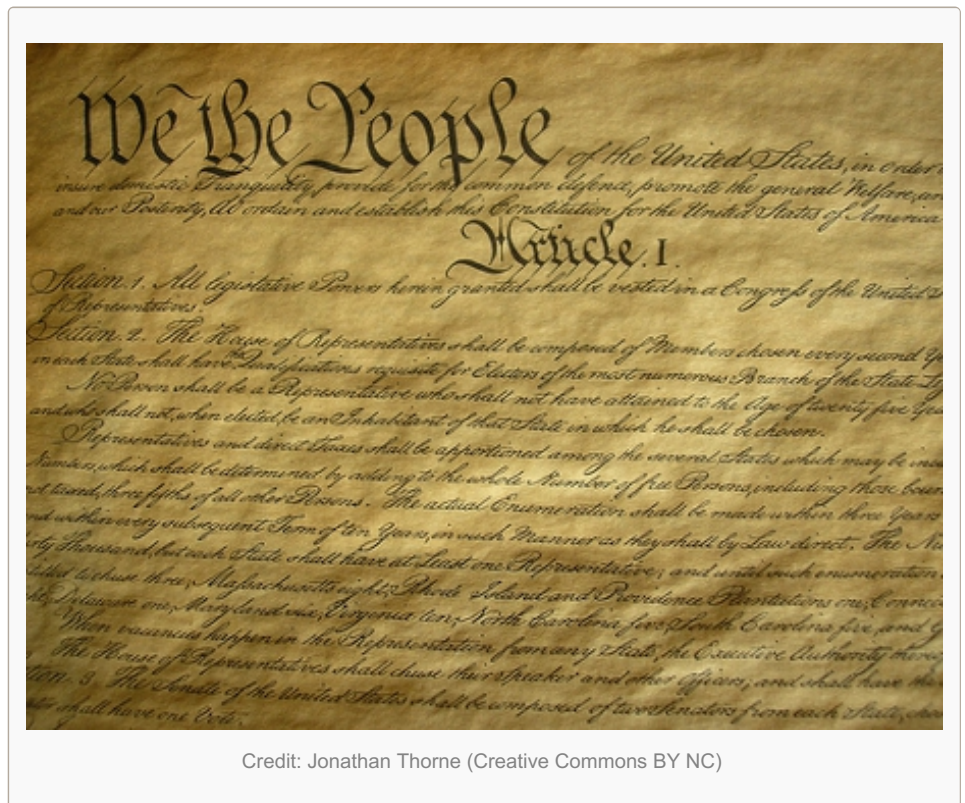 We the People of the United States, in order
insure domestic Tranquility, provide for the common defence, promote the general Welfare, an
and our Posterity, do ordain and establish this Constitution for the United States of America
Article. I.
Section. 1. All legislative Powers herein granted shall be vested in a Congress of the United S
of Representatives.
Section. 2. The House of Representatives shall be composed of Members chosen every second Ye
in each State shall have the Qualifications requisite for Electors of the most numerous Branch of the State Leg
No Person shall be a Representative who shall not have attained to the Age of twenty five Yea
and who shall not, when elected, be an Inhabitant of that State in which he shall be chosen.
Representatives and direct Taxes shall be apportioned among the several States which may be incl
Numbers, which shall be determined by adding to the whole Number of free Persons, including those boun
not taxed, three fifths of all other Persons. The actual Enumeration shall be made within three Years
and within every subsequent Term of ten Years, in such Manner as they shall by Law direct. The Nu
irty Thousand, but each State shall have at Least one Representative; and until such enumeration
titled to chuse three, Massachusetts eight, Rhode Island and Providence Plantations one, Connec
ght, Delaware one, Maryland six, Virginia ten, North Carolina five, South Carolina five, and G
When vacancies happen in the Representation from any State, the Executive Authority thereo
The House of Representatives shall chuse their Speaker and other Officers; and shall have the
tion. 3. The Senate of the United States shall be composed of two Senators from each State, chos
tor shall have one Vote.
Credit: Jonathan Thorne (Creative Commons BY NC)